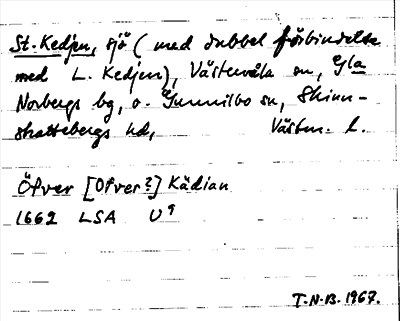 St. Kedjen, sjö (med dubbel förbindelse
med L. Kedjen), Västervåla sn, Gla
Norbergs bg, o. Gunnilbo sn, Skinn-
skattebergs hd, Västm. l.
Öfver [Ofver?] Kädian
1662 LSA U9
T.N-B. 1967.